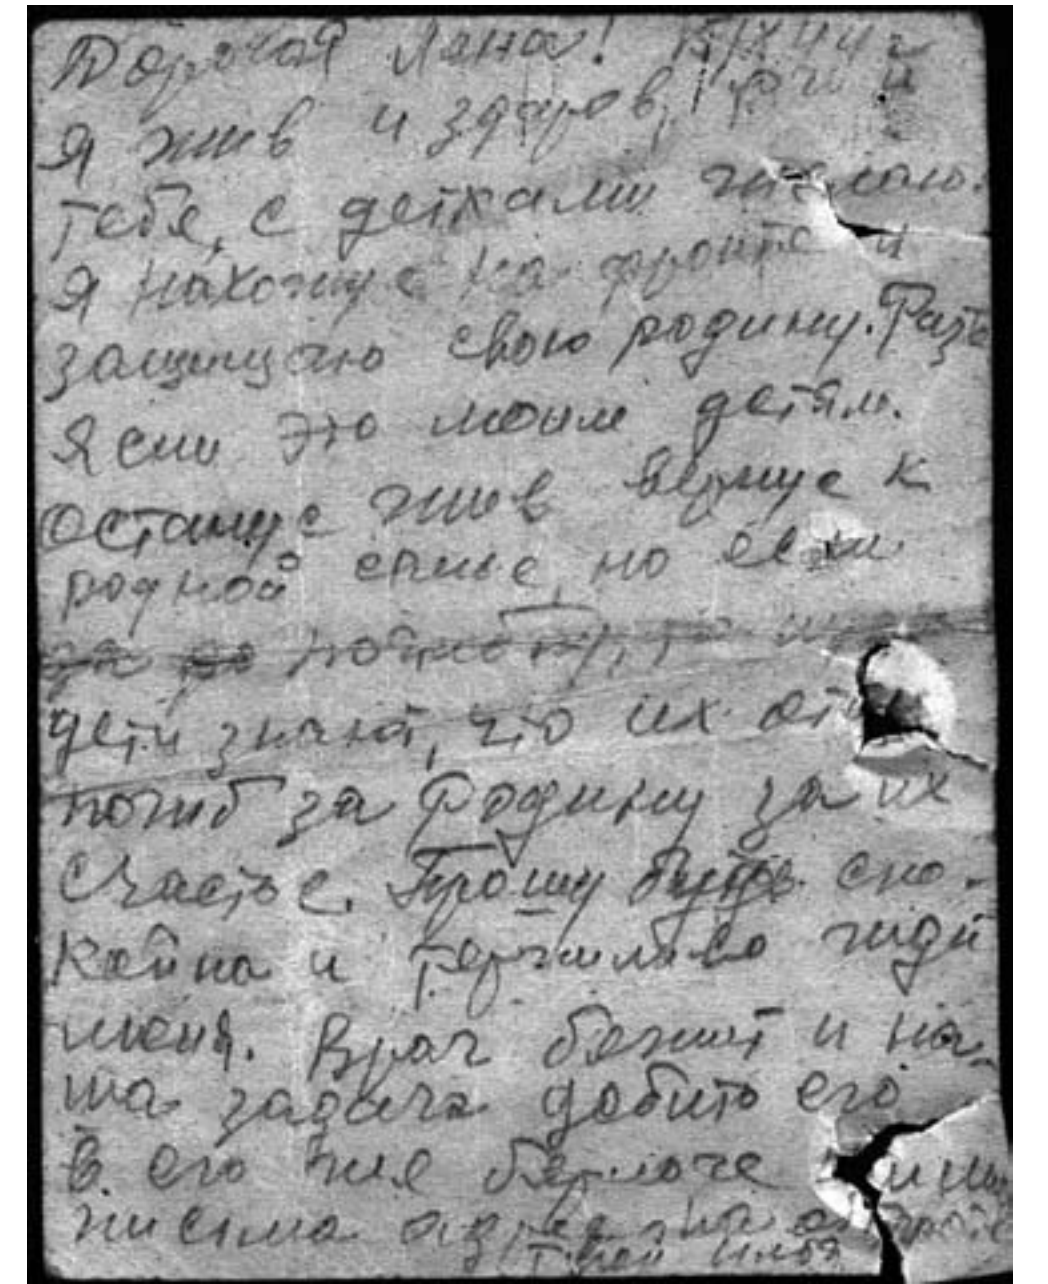 Дорогая Лена!
Я жив и здаров,
тебя, с детками
Я нахожус на фронте и
защищаю свою родину. Разъ
Ясни это моим детям.
Останус жив вернус к
родной семье, но если
погибну,
дети знают, что их
погиб за Родину за их
счастье. Прошу будь спо-
койна и терпиливо жди
меня. Враг бежит и на-
ша задача добить его
в его же берлоге
письма адрес на
Твой Илья